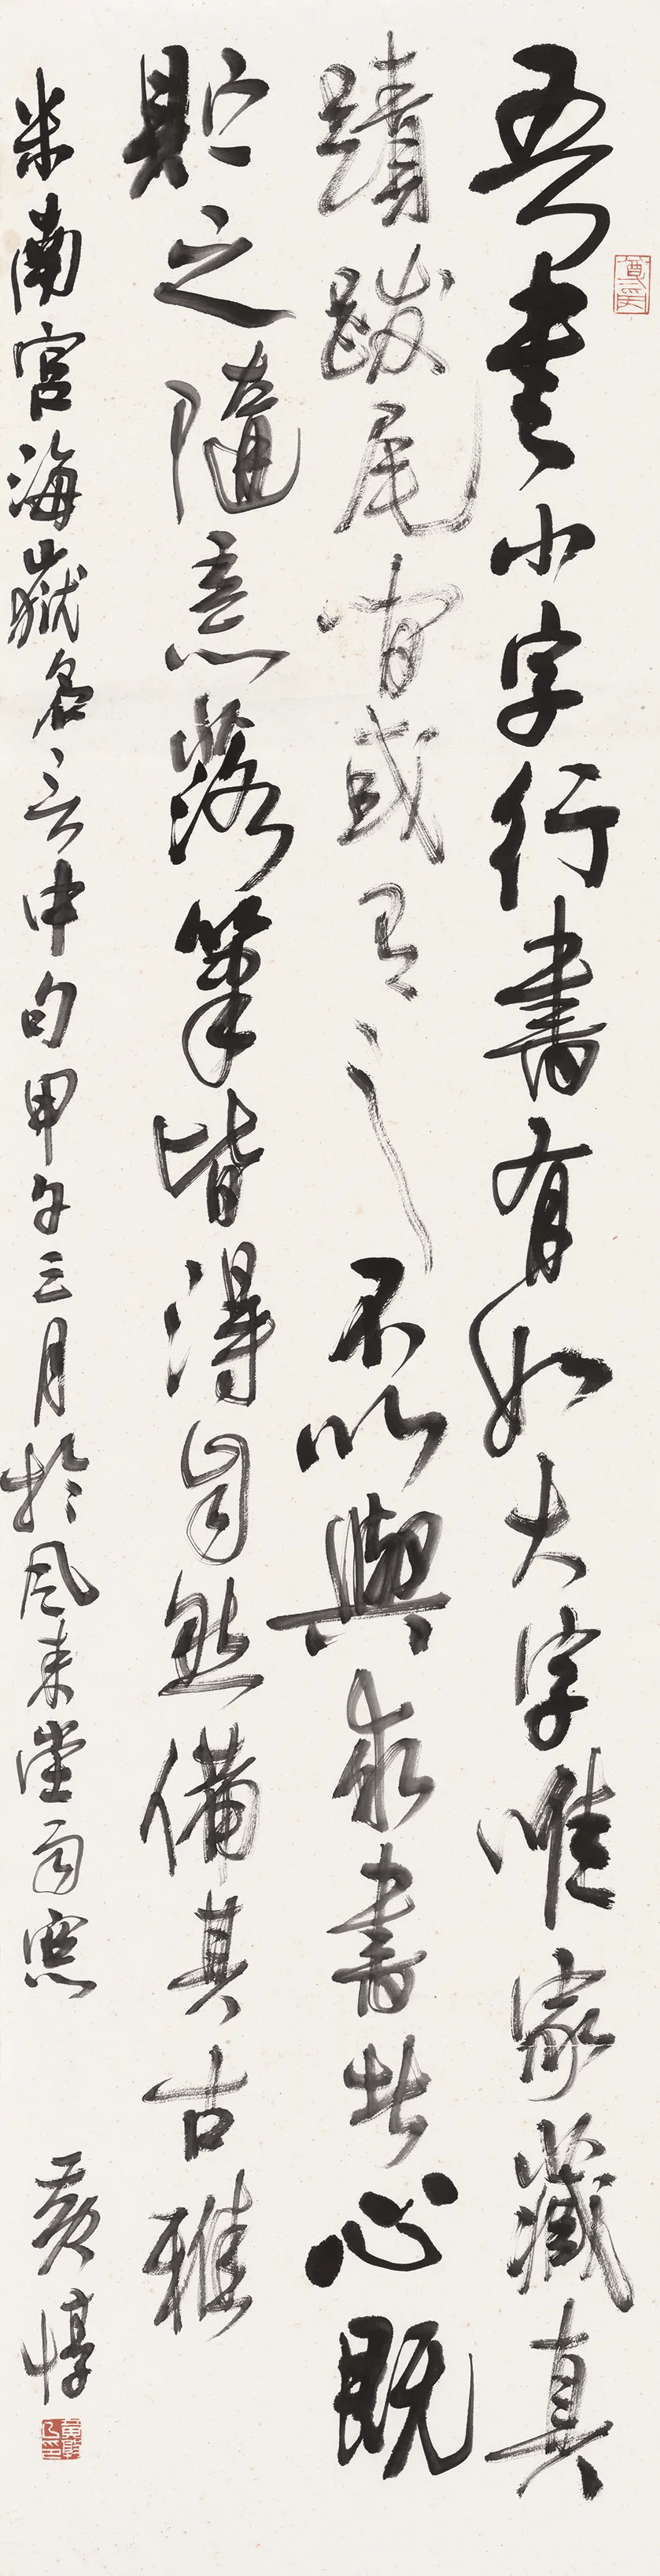 吾書小字行書有如大字唯家藏真
蹟跋尾間或有之不以與求書者心既
貯之隨意落筆皆得自然備其古雅
米南宮海嶽名言中句甲午三月於風來堂南窓
黃惇